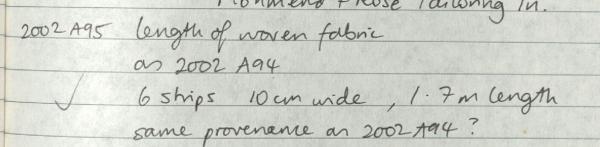 2002 A95 length of woven fabric
as 2002 A94
6 strips 10cm wide, 1.7m length
same provenance as 2002 A94?